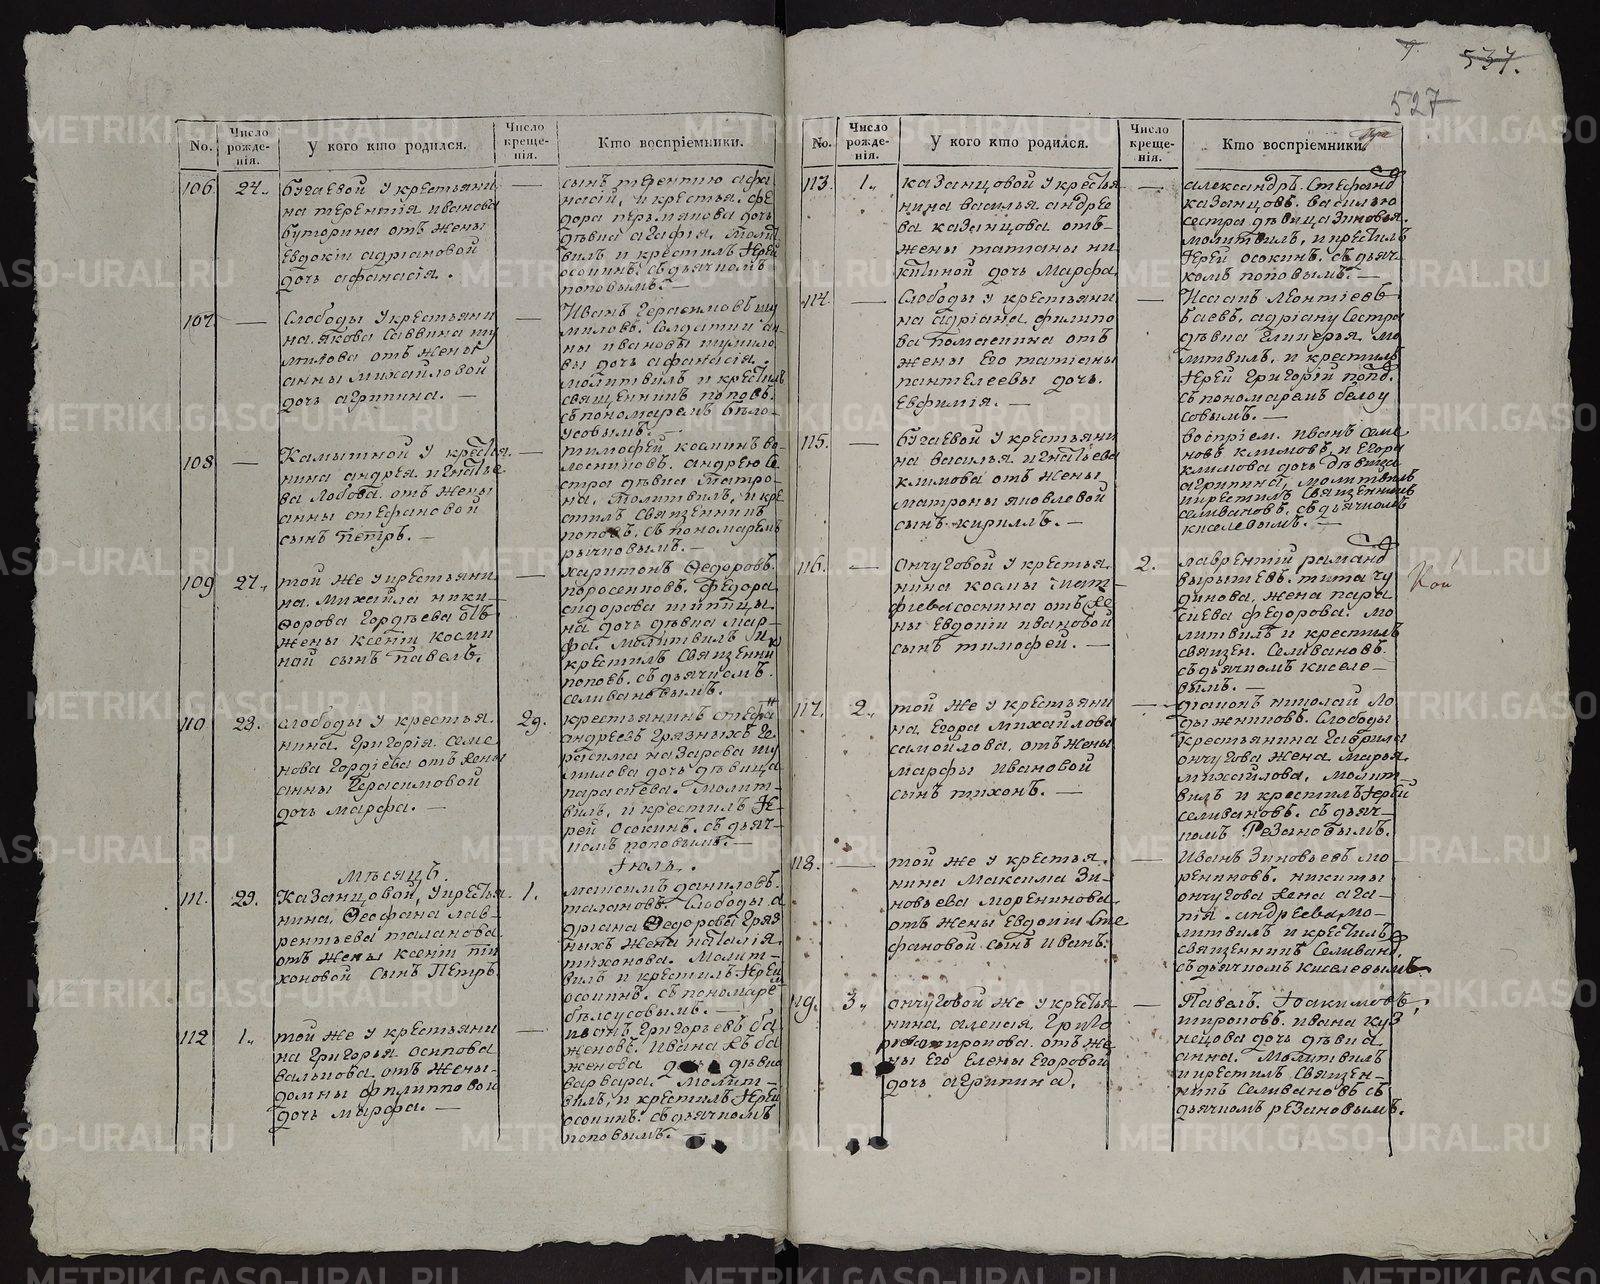 537.
527
No.
Число рожде-нія.
У кого кто родился.
Число креще-нія.
Кто воспріемники.
106
24.
бугаевой у крестьяни
на терентія иванова
буторина отъ жены
Евдокіи адріановой
дочь афанасія.
—
сынъ терентію афа
насій, и крестья. фе
дора перьмякова дочь
дѣвка агафія. молит
вилъ и крестилъ Іерей
осокинъ. съ дьячкомъ
поповымъ. —
107.
—
Слободы у крестьяни
на якова саввина шу
милова отъ жены
анны михайловой
дочь агрипина. —
—
Иванъ Герасимовъ шу
миловъ. Солдатки ан
ны ивановы шумило
вы дочь афанасія.
молитвилъ и крестилъ
священникъ поповъ.
съ пономаремъ бѣло
усовымъ. —
108
—
Камышной у крестья
нина андрея игнатье
ва Лобова. отъ жены
анны стефановой
сынъ петръ. —
—
тимофей косминъ во
лосниковъ. андрею се
стра дѣвка матро
на. молитвилъ, и кре
стилъ священникъ
поповъ. съ пономаремъ
рычковымъ. —
109
27.
той же у крестьяни
на. михайла ники
форова Гордѣева отъ
жены ксеніи косми
ной сынъ павелъ.
—
харитонъ Ѳедоровъ.
поросенковъ. Федора
сидорова шипицы
на дочь дѣвка мар
фа. молитвилъ и
крестилъ священни
поповъ. съ дьячкомъ.
селивановымъ.
110
28.
слободы у крестья.
нина. Григорія. семе
нова Гордіева отъ жены
анны Герасимовой
дочь марфа. —
29.
крестьянинъ стефан
андреевъ Грязныхъ Ге
расима назарова шу
милова дочь дѣвица
парасіева. молит
вилъ, и крестилъ Іе
рей осокинъ. съ дьяч
комъ поповымъ. —
Мѣсяцъ.
Іюль.
111.
29.
Казанцовой, у крестья
нина, Ѳеофана лав
рентьева таланова
отъ жены ксеніи ти
хоновой сынъ Петръ
1.
максимъ даниловъ.
талановъ. слободы а
дріана Ѳедорова Гряз
ныхъ жена наталія
тихонова. молит
вилъ и крестилъ Іерей
осокинъ. съ пономарем
бѣлоусовымъ. —
112
1.
той же у крестьяни
на Григорья осипова
валькова отъ жены
домны филипповой
дочь марфа. —
—
иванъ Григорьевъ ба
женовъ. ивана ба
женова дочь дѣвка
варвара. молит
вилъ, и крестилъ Іерей
осокинъ. съ дьячкомъ
поповымъ. —
No.
Число рожде-нія.
У кого кто родился.
Число креще-нія.
Кто воспріемники.
113.
1.
казанцовой у крестья
нина василья андрее
ва казанцова отъ
жены татіаны ни
китиной дочь марфа
—
александръ. Стефано
казанцовъ. василью
сестра дѣвица зиновья.
молитвилъ, и крестилъ
Іерей осокинъ. съ дьяч
комъ поповымъ. —
114.
—
Слободы у крестьяни
на адріана филипо
ва помаскина отъ
жены Его татіаны
пантелеевы дочь.
Евфимія. —
—
Исаакъ леонтіевъ
баевъ. адріану сестра
дѣвка гликерья. мо
литвилъ, и крестилъ
Іерей Григорій попов.
съ пономаремъ белоу
совымъ. —
115.
—
бугаевой у крестьяни
на василья игнатьева
климова отъ жены
матроны яковлевой
сынъ кириллъ. —
воспріем. иванъ семе
новъ климовъ, и Егора
климова дочь дѣвица
агрипина, молитвилъ
и крестилъ священникъ
селивановъ. съ дьячкомъ
киселевымъ. —
116.
—
Ончуговой у крестья
нина космы мат
фіева соснина отъ же
ны Евдокіи ивановой
сынъ тимофей. —
2.
лаврентій романо
вырышевъ. тита чу
динова, жена пара
сіева федорова. мо
литвилъ и крестилъ
священ. селивановъ
съ дьячкомъ киселе
вымъ. —
117.
2.
той же у крестьяни
на, Егора михайлова
самойлова, отъ жены
марфы ивановой
сынъ тихонъ. —
—
дьяконъ николай ло
дыжниковъ. слободы
крестьянина Гаврила
ончугова жена марья
михайлова, молит
вилъ и крестилъ Іерей
селивановъ. съ дьяч
комъ Резановымъ.
118.
—
той же у крестья
нина максима зи
новьева моренинова
отъ жены Евдокіи сте
фановой сынъ иванъ.
—
Иванъ зиновьевъ мо
рениновъ. никиты
ончугова жена ага
пія. андреева, мо
литвилъ и крестилъ
священникъ селиванов
съ дьячкомъ киселевымъ
119.
3.
онуговой же у крестья
нина, алексія, Григо
рьева широнова. отъ же
ны Его Елены Егоровой
дочь агрипина,
—
Павелъ. Іоакимовъ
широновъ. ивана куз
нецова дочь дѣвка
анна. молитвилъ
и крестилъ священ
никъ селивановъ съ
дьячкомъ резановымъ.